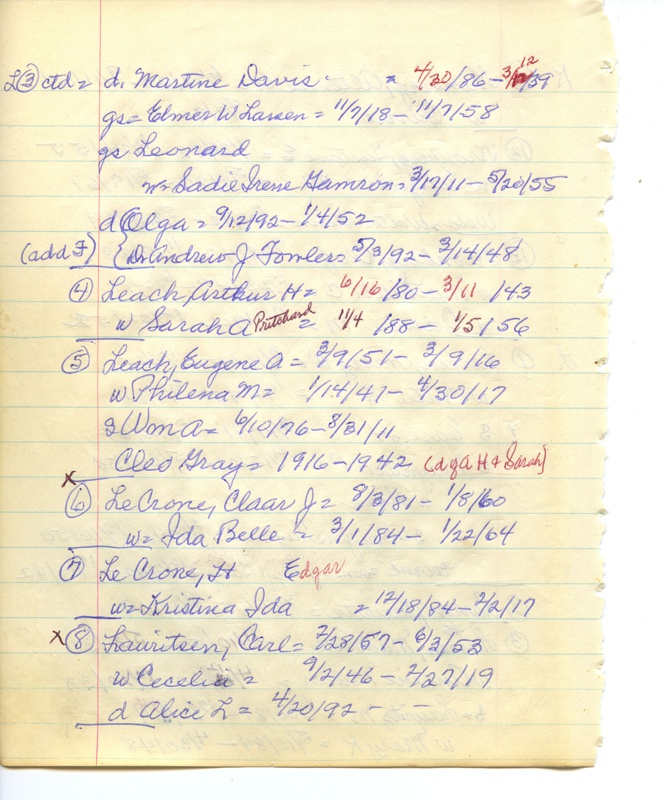 L③ ctd = d. Martine Davis = 4/30/86 - 3/12/39
gs = Elmer W Larsen = 11/7/18 - 11/7/58
gs Leonard
w = Sadie Irene Hamron = 3/17/11 - 5/20/55
d Olga = 9/12/92 - 1/4/52
(add F) { Dr Andrew J Fowler = 5/3/92 - 3/14/48
④ Leach, Arthur H = 6/16/80 - 3/11/43
w Sarah A Pritchard = 11/4/88 - 1/5/56
⑤ Leach, Eugene A = 3/9/51 - 3/9/16
w Philena M = 1/14/41 - 4/30/17
Wm A = 6/10/76 - 8/31/11
Cleo Gray = 1916 - 1942 (d of A H & Sarah)
x ⑥ LeCrone, Claar J = 8/3/81 - 1/8/60
w = Ida Belle = 3/1/84 - 1/22/64
⑦ Le Crone, H Edgar
w = Kristina Ida = 12/18/84 - 2/2/17
x ⑧ Lauritsen, Carl = 7/28/57 - 6/2/53
w Cecelia = 9/2/46 - 2/27/19
d Alice L = 4/20/92 - -